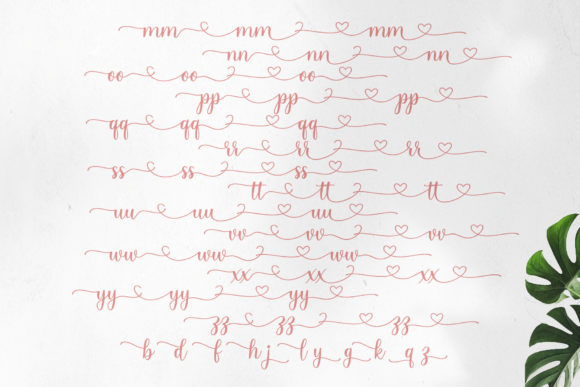 mm mm mm
nn nn nn
oo oo oo
pp pp pp
qq qq qq
rr rr rr
ss ss ss
tt tt tt
uu uu uu
vv vv vv
ww ww ww
xx xx xx
yy yy yy
zz zz zz
b d f h j l y g k q z